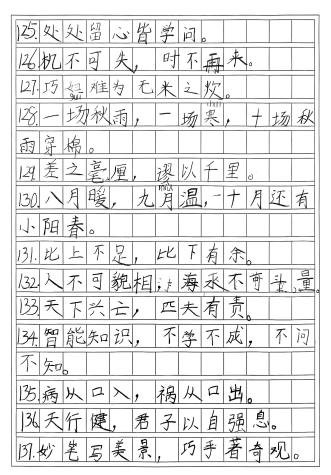 125.处处留心皆学问。
126.机不可失，时不再来。
127.巧妇难为无米之炊。
128.一场秋雨，一场寒，十场秋
雨穿棉。
129.差之毫厘，谬以千里。
130.八月暖，九月温，十月还有
小阳春。
131.比上不足，比下有余。
132.人不可貌相，海水不可斗量。
133.天下兴亡，匹夫有责。
134.智能知识，不学不成，不问
不知。
135.病从口入，祸从口出。
136.天行健，君子以自强息。
137.妙笔写美景，巧手著奇观。